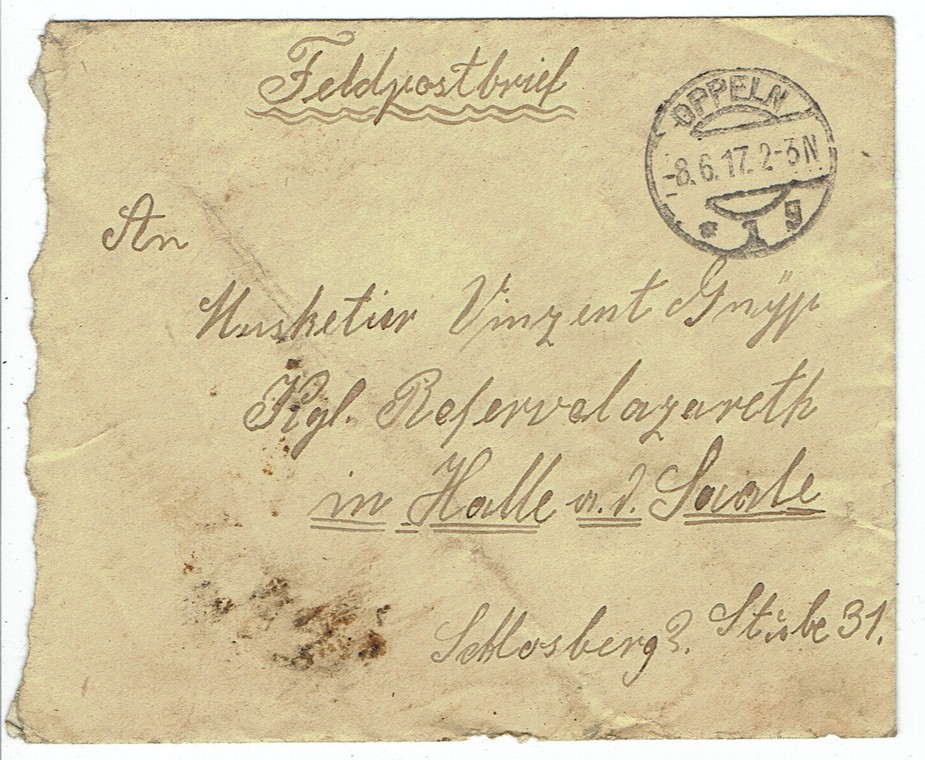 Feldpostbrief
OPPELN
-8.6.17.2-3N
* 1 g
An
Musketier Vinzent Gnÿp
Kgl. Reservelazareth
in Halle a.d. Saale
Schlosberg 2. Stube 31.